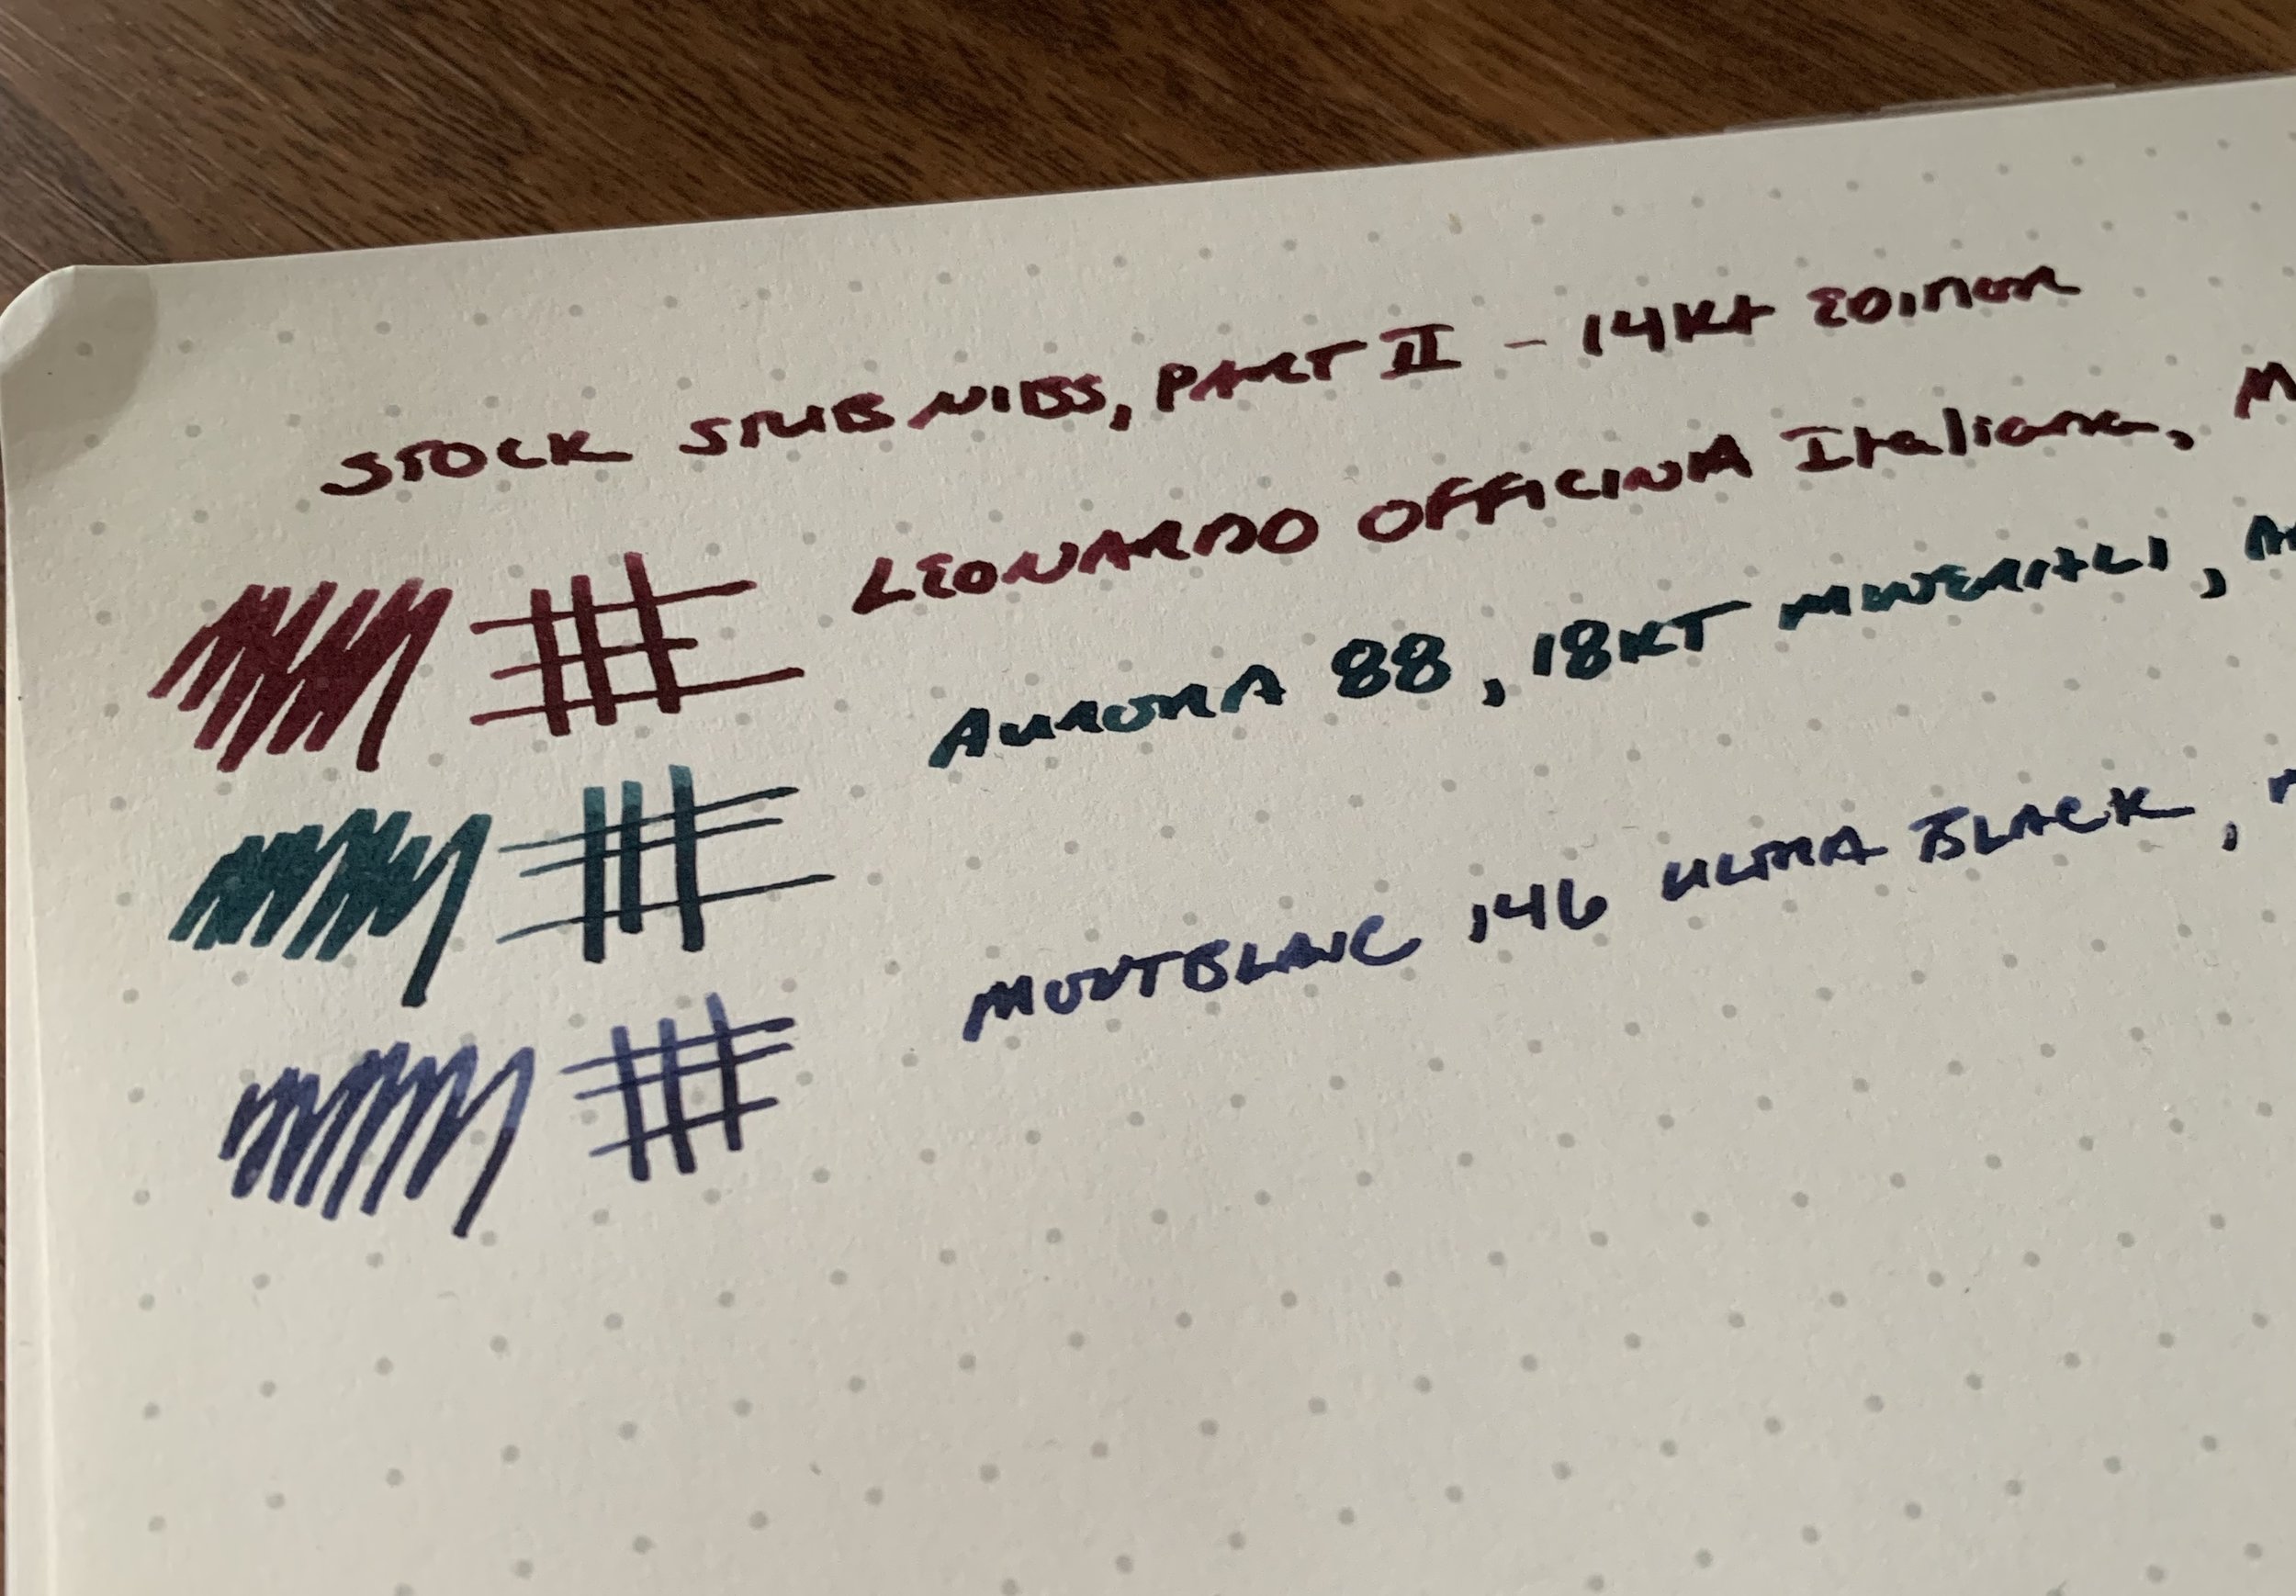 STOCK STUB NIBS, PART II - 14Kt EDITION
LEONARDO OFFICINA Italiana, M
AURORA 88, 18KT MINERALI, A
MONTBLANC 146 ULTRA BLACK,